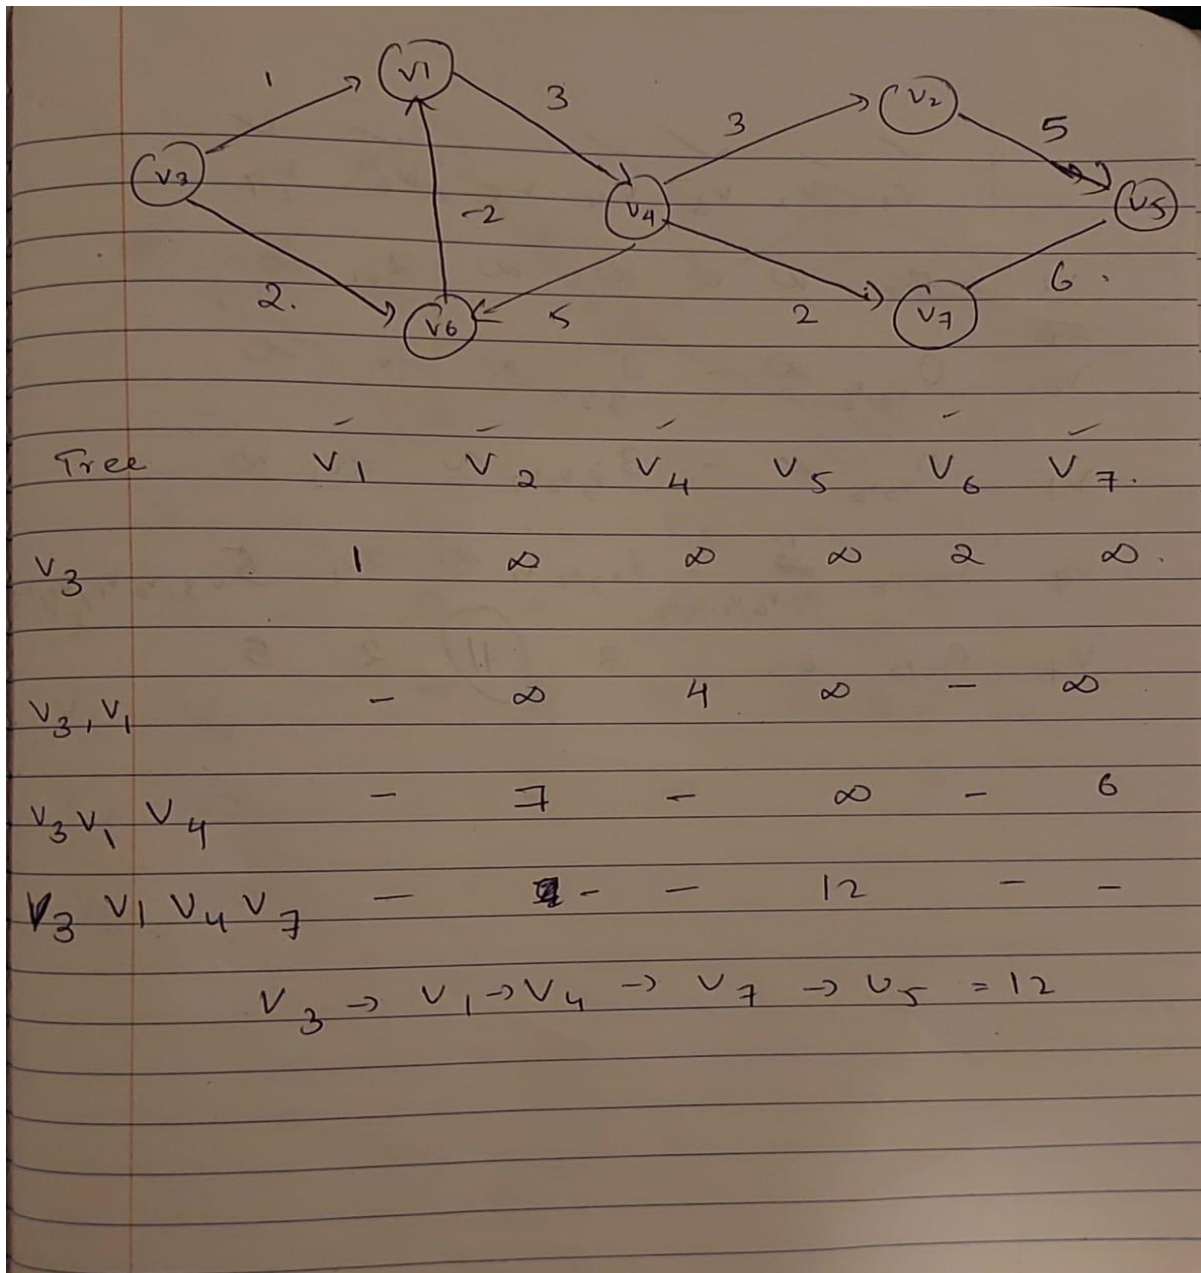 1 V1 3 3 V2 5
V3 V4 V5
-2
2. V6 5 2 V7 6.
Tree V1 V2 V4 V5 V6 V7.
V3 1 ∞ ∞ ∞ 2 ∞.
V3, V1 - ∞ 4 ∞ - ∞
V3 V1 V4 - 7 - ∞ - 6
V3 V1 V4 V7 - - - 12 - -
V3 → V1 → V4 → V7 → V5 = 12